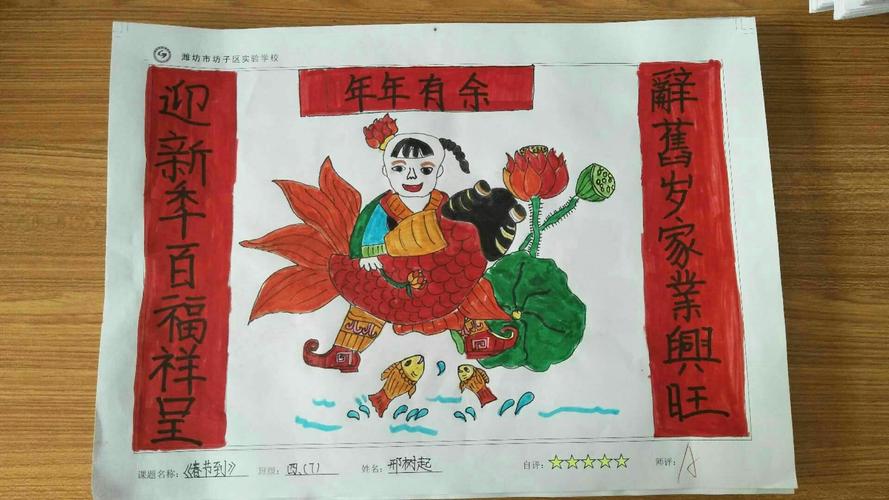 潍坊市坊子区实验学校
年年有余
辭舊岁家業興旺
迎新季百福祥呈
课题名称:《春节到》 班级:四、(7) 姓名:邢树起 自评:☆☆☆☆☆ 师评:A